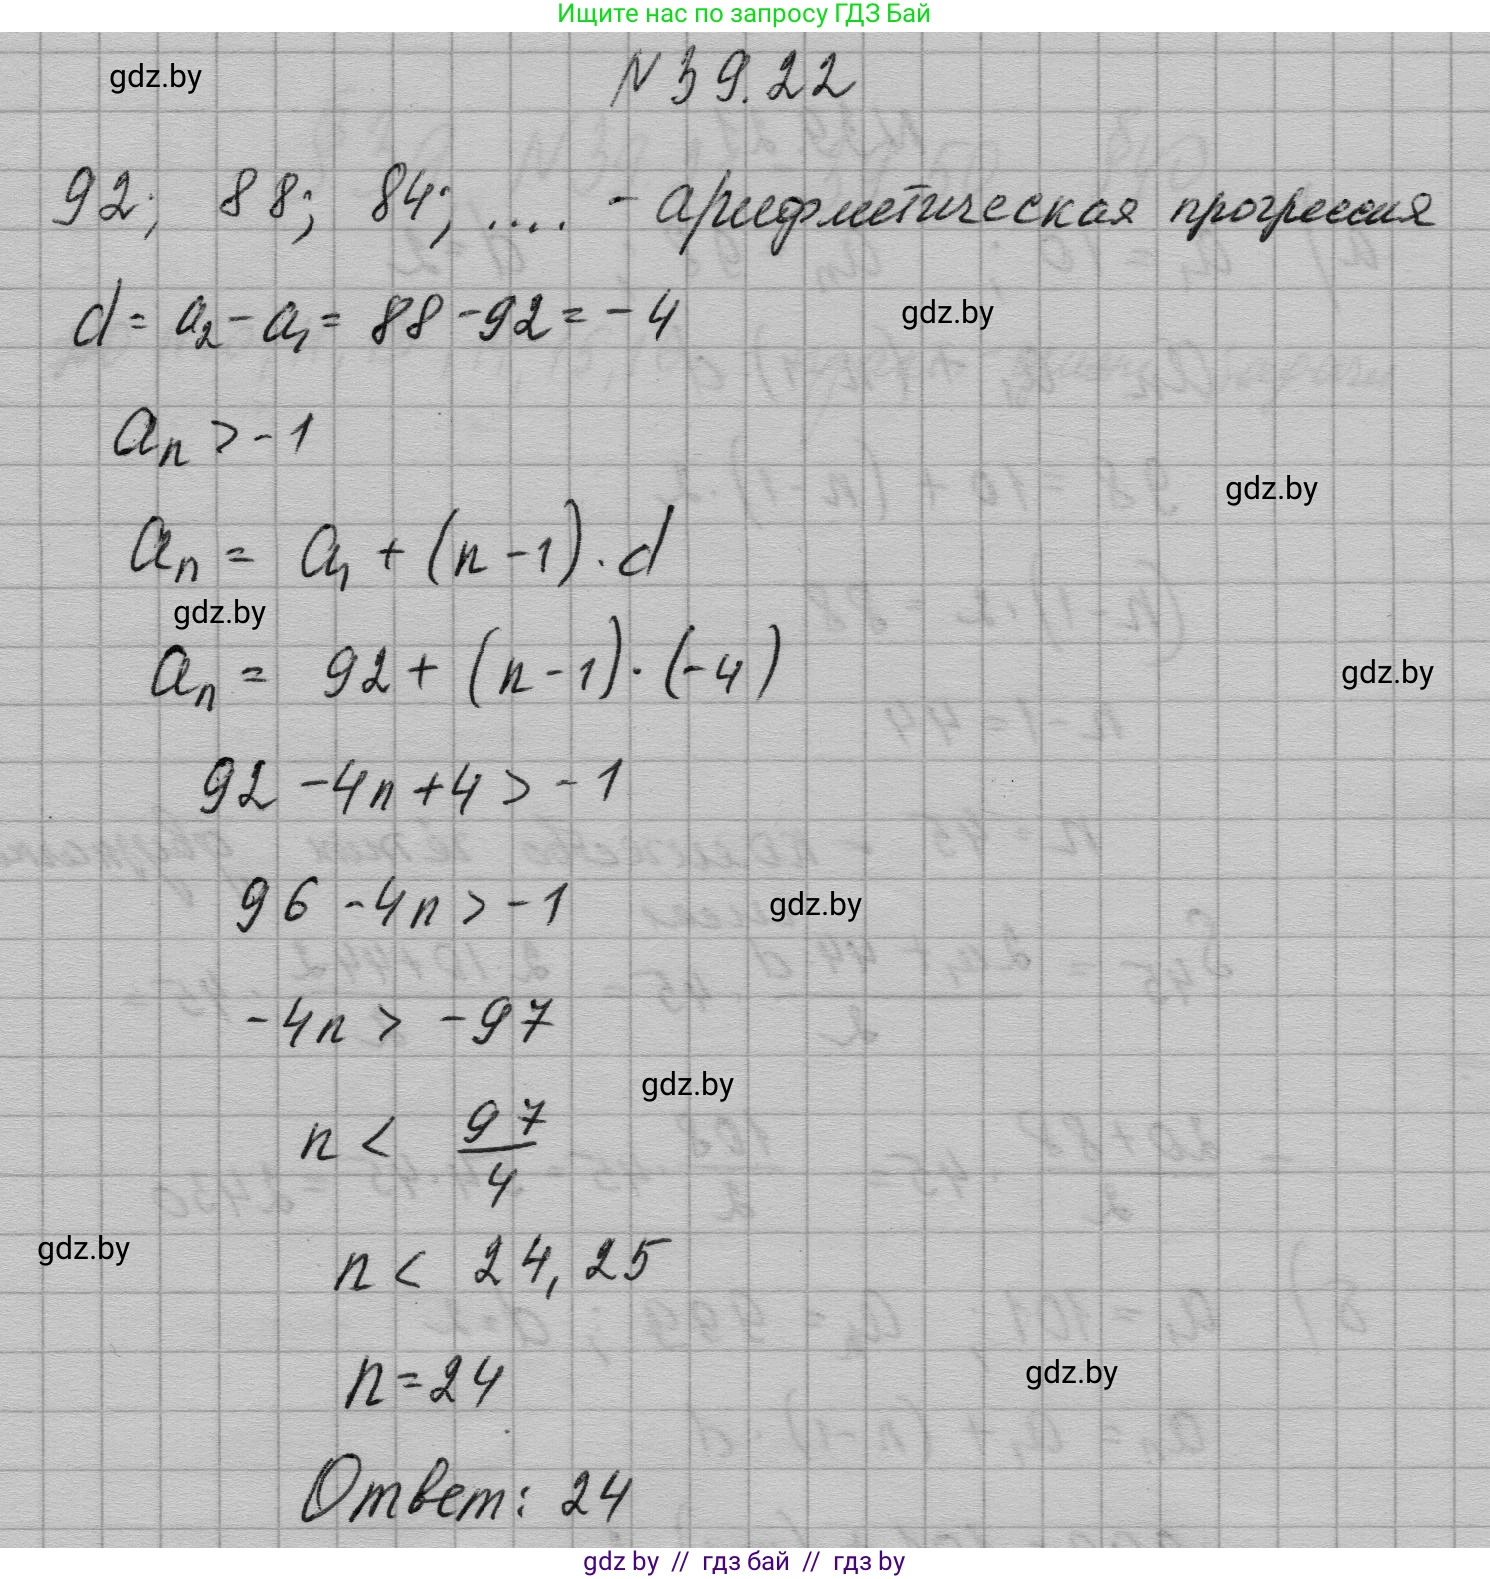 Ищите нас по запросу ГДЗ Бай
gdz.by
N 39.22
92; 88; 84; .... - арифметическая прогрессия
d = a₂ - a₁ = 88 - 92 = - 4
gdz.by
aₙ > - 1
gdz.by
aₙ = a₁ + (n - 1) · d
gdz.by
aₙ = 92 + (n - 1) · (- 4)
gdz.by
92 - 4n + 4 > - 1
96 - 4n > - 1
gdz.by
- 4n > - 97
gdz.by
n < 97/4
gdz.by
n < 24,25
n = 24
gdz.by
Ответ: 24
gdz by // гдз бай // гдз by